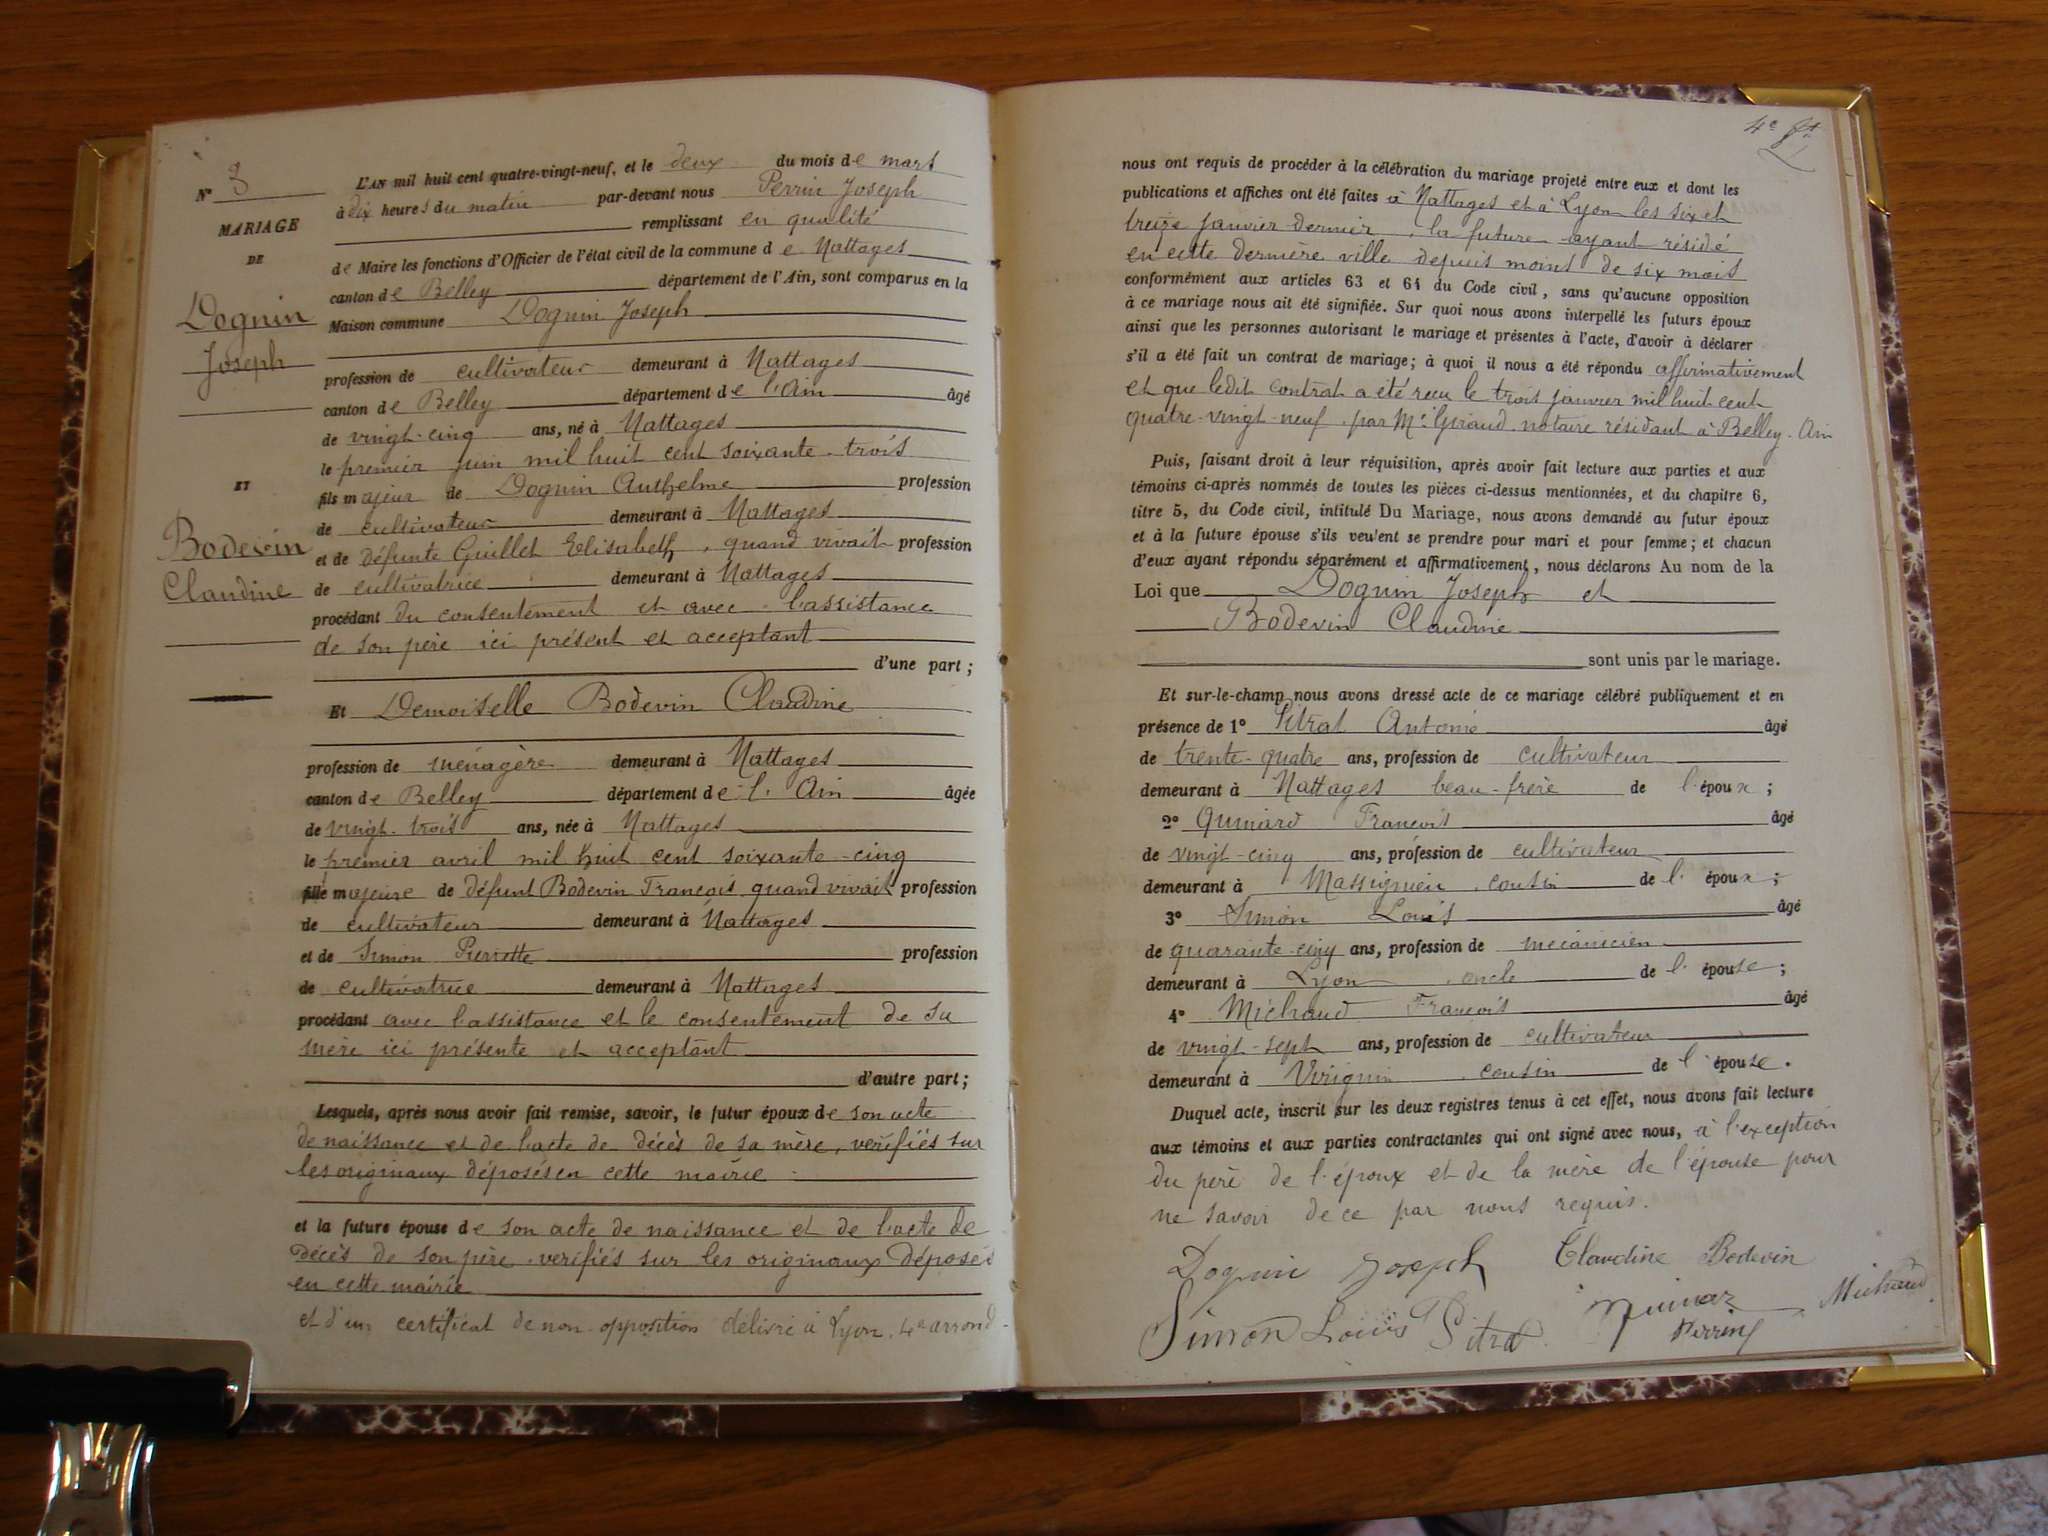 N° 8
MARIAGE
DE
Doguin
Joseph
ET
Bodevin
Claudine
L'AN mil huit cent quatre-vingt-neuf, et le deux du mois de mars
à dix heures du matin par-devant nous Perrin Joseph
remplissant en qualité
de Maire les fonctions d'Officier de l'état civil de la commune de Nattages
canton de Belley département de l'Ain, sont comparus en la
Maison commune Doguin Joseph
profession de cultivateur demeurant à Nattages
canton de Belley département de l'Ain âgé
de vingt-cinq ans, né à Nattages
le premier juin mil huit cent soixante-trois
fils majeur de Doguin Anthelme profession
de cultivateur demeurant à Nattages
et de défunte Guillet Elisabeth, quand vivait profession
de cultivatrice demeurant à Nattages
procédant du consentement et avec l'assistance
de son père ici présent et acceptant
d'une part;
Et Demoiselle Bodevin Claudine
profession de ménagère demeurant à Nattages
canton de Belley département de l'Ain âgée
de vingt-trois ans, née à Nattages
le premier avril mil huit cent soixante-cinq
fille majeure de défunt Bodevin François quand vivait profession
de cultivateur demeurant à Nattages
et de Simon Pierrette profession
de cultivatrice demeurant à Nattages
procédant avec l'assistance et le consentement de sa
mère ici présente et acceptant
d'autre part;
Lesquels, après nous avoir fait remise, savoir, le futur époux de son acte
de naissance et de l'acte de décès de sa mère, vérifiés sur
les originaux déposés en cette mairie
et la future épouse de son acte de naissance et de l'acte de
décès de son père vérifiés sur les originaux déposés
en cette mairie
et d'un certificat de non-opposition délivré à Lyon, 4e arrond.
4e ft
nous ont requis de procéder à la célébration du mariage projeté entre eux et dont les
publications et affiches ont été faites à Nattages et à Lyon les six et
treize janvier dernier, la future ayant résidé
en cette dernière ville depuis moins de six mois
conformément aux articles 63 et 64 du Code civil, sans qu'aucune opposition
à ce mariage nous ait été signifiée. Sur quoi nous avons interpellé les futurs époux
ainsi que les personnes autorisant le mariage et présentes à l'acte, d'avoir à déclarer
s'il a été fait un contrat de mariage; à quoi il nous a été répondu affirmativement
et que ledit contrat a été reçu le trois janvier mil huit cent
quatre-vingt-neuf par Me Giraud notaire résidant à Belley. Ain
Puis, faisant droit à leur réquisition, après avoir fait lecture aux parties et aux
témoins ci-après nommés de toutes les pièces ci-dessus mentionnées, et du chapitre 6,
titre 5, du Code civil, intitulé Du Mariage, nous avons demandé au futur époux
et à la future épouse s'ils veulent se prendre pour mari et pour femme; et chacun
d'eux ayant répondu séparément et affirmativement, nous déclarons Au nom de la
Loi que Doguin Joseph et
Bodevin Claudine
sont unis par le mariage.
Et sur-le-champ nous avons dressé acte de ce mariage célébré publiquement et en
présence de 1° Pitrat Antoine âgé
de trente-quatre ans, profession de cultivateur
demeurant à Nattages beau-frère de l'époux;
2° Guinard François âgé
de vingt-cinq ans, profession de cultivateur
demeurant à Massignieu, cousin de l'époux;
3° Simon Louis âgé
de quarante-cinq ans, profession de mécanicien
demeurant à Lyon, oncle de l'épouse;
4° Michaud François âgé
de vingt-sept ans, profession de cultivateur
demeurant à Virignin, cousin de l'épouse.
Duquel acte, inscrit sur les deux registres tenus à cet effet, nous avons fait lecture
aux témoins et aux parties contractantes qui ont signé avec nous, à l'exception
du père de l'époux et de la mère de l'épouse pour
ne savoir de ce par nous requis.
Doguin Joseph Claudine Bodevin
Simon Louis Pitrat Michaud
Perrin